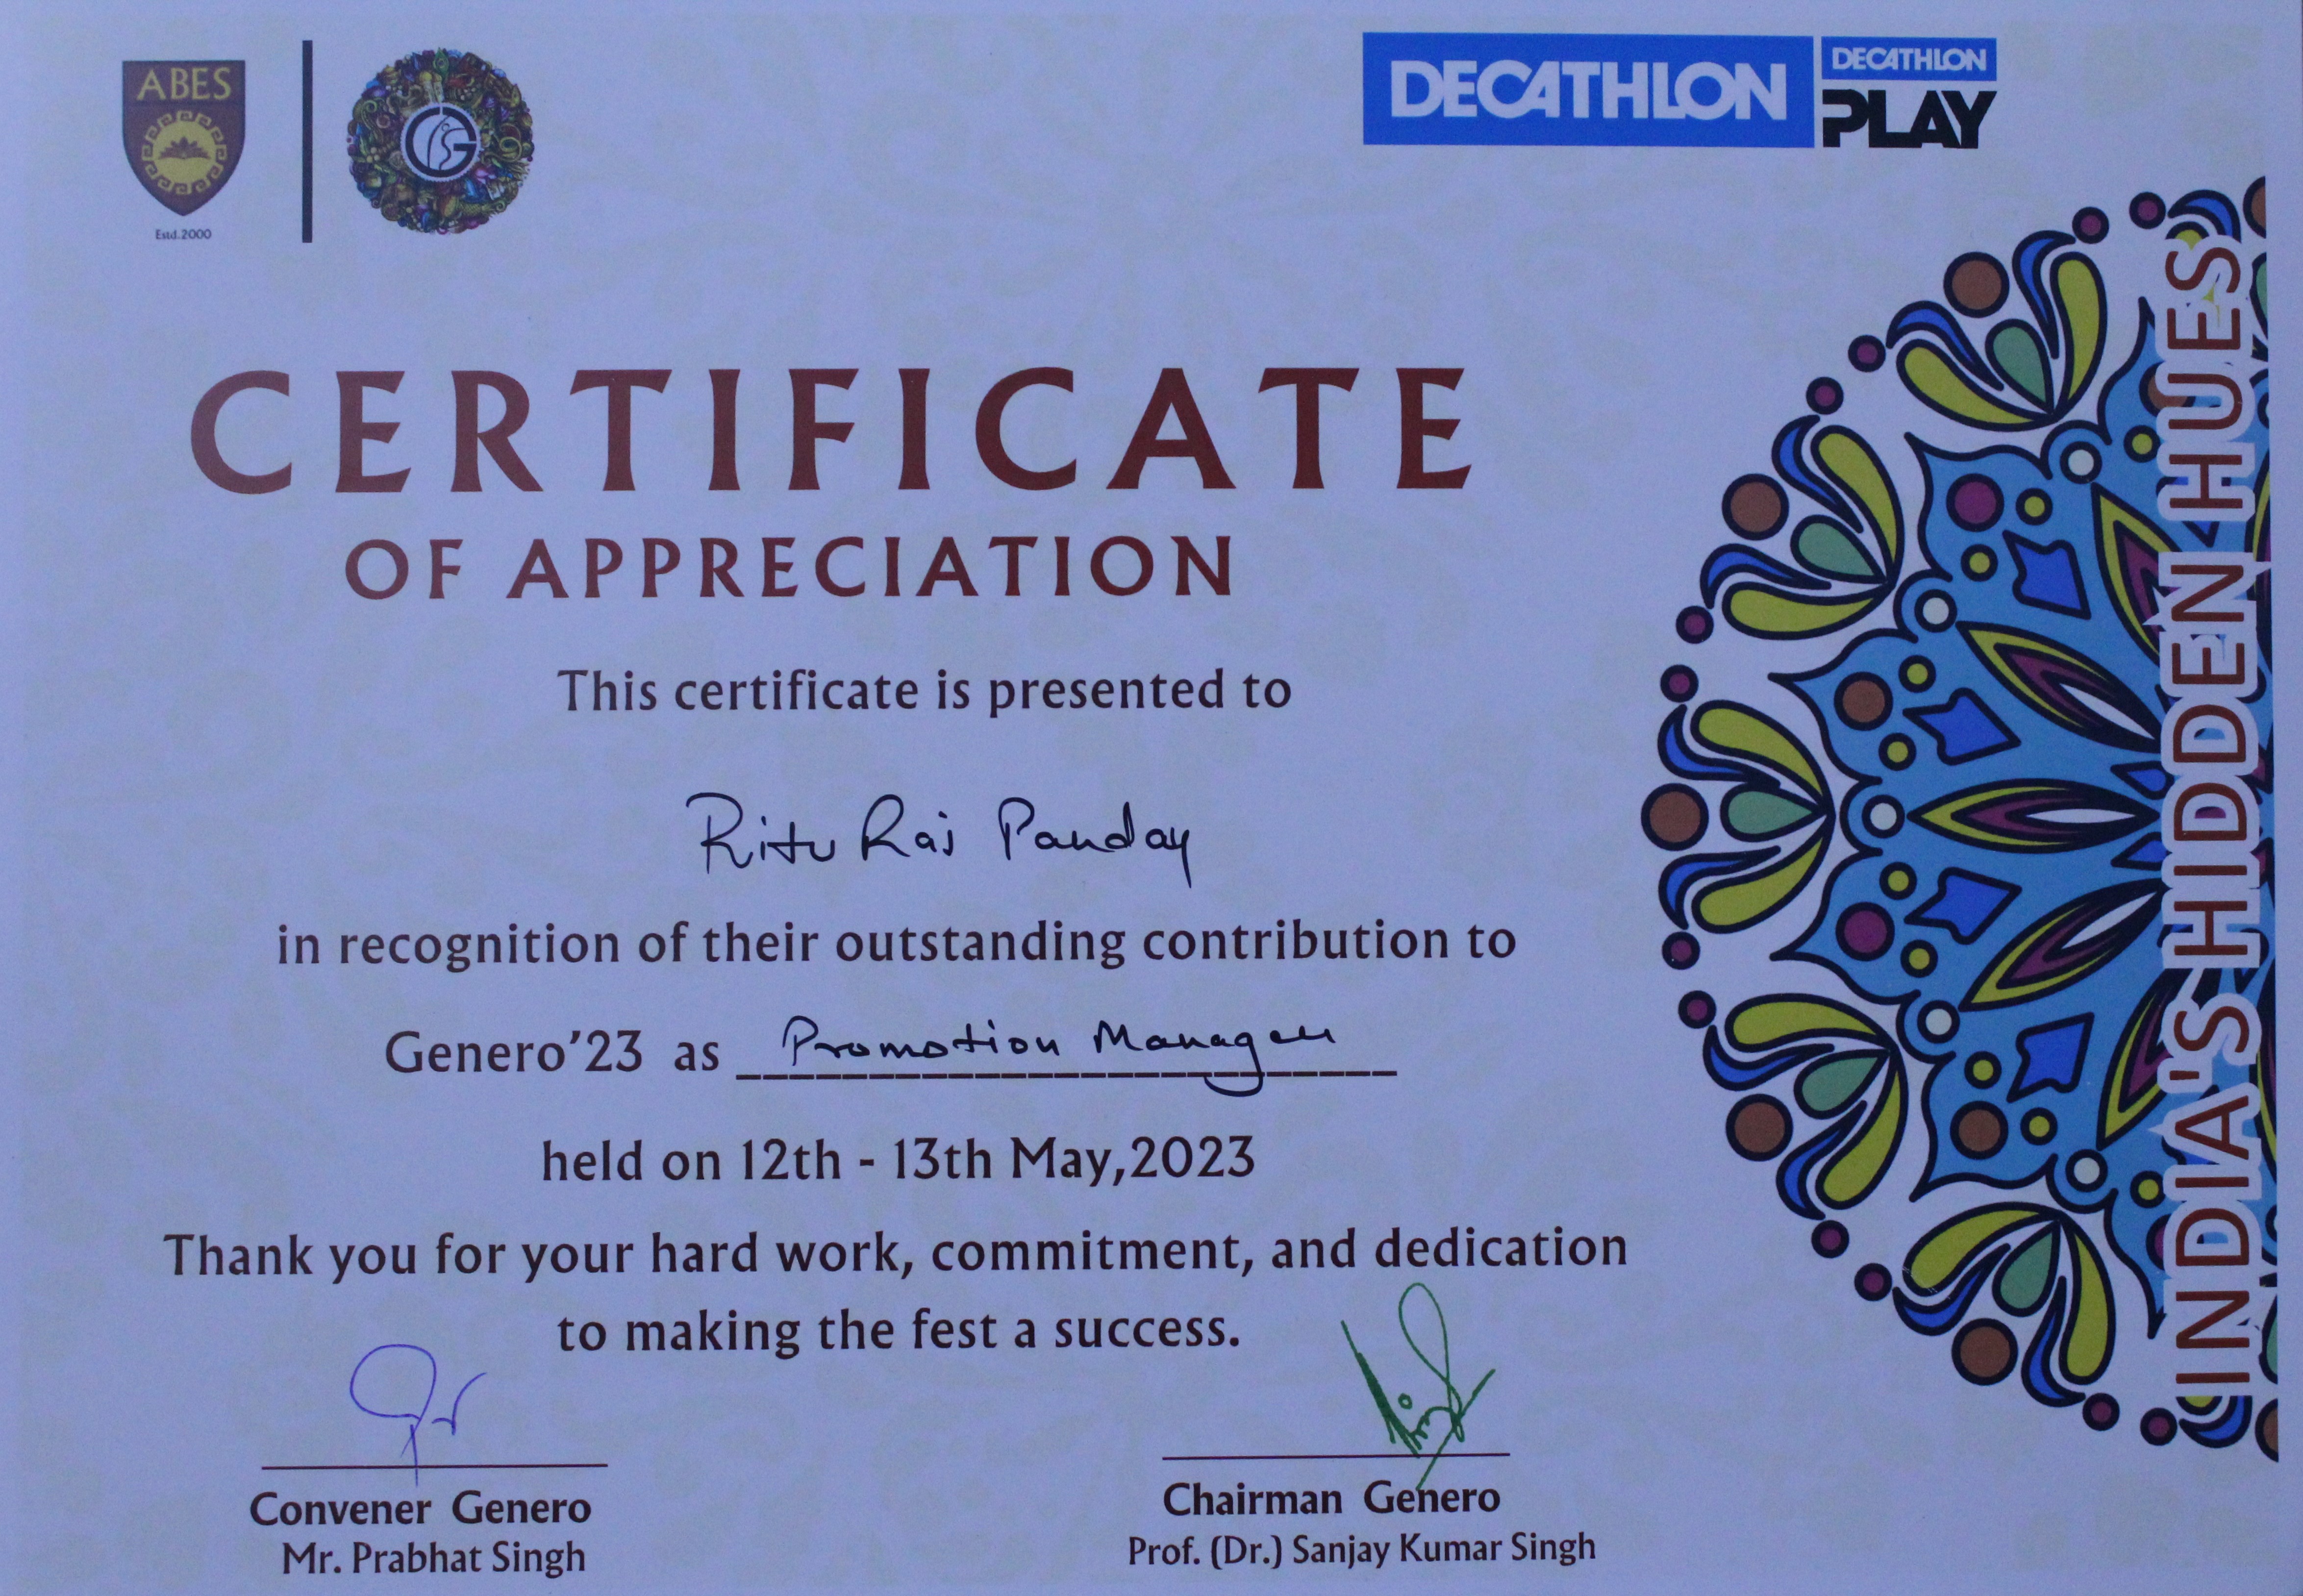 ABES
Estd.2000
G
DECATHLON
DECATHLON
PLAY
CERTIFICATE
OF APPRECIATION
This certificate is presented to
Ritu Raj Panday
in recognition of their outstanding contribution to
Genero'23 as Promotion Manager
held on 12th - 13th May,2023
Thank you for your hard work, commitment, and dedication
to making the fest a success.
Convener Genero
Mr. Prabhat Singh
Chairman Genero
Prof. (Dr.) Sanjay Kumar Singh
INDIA'S HIDDEN HUES